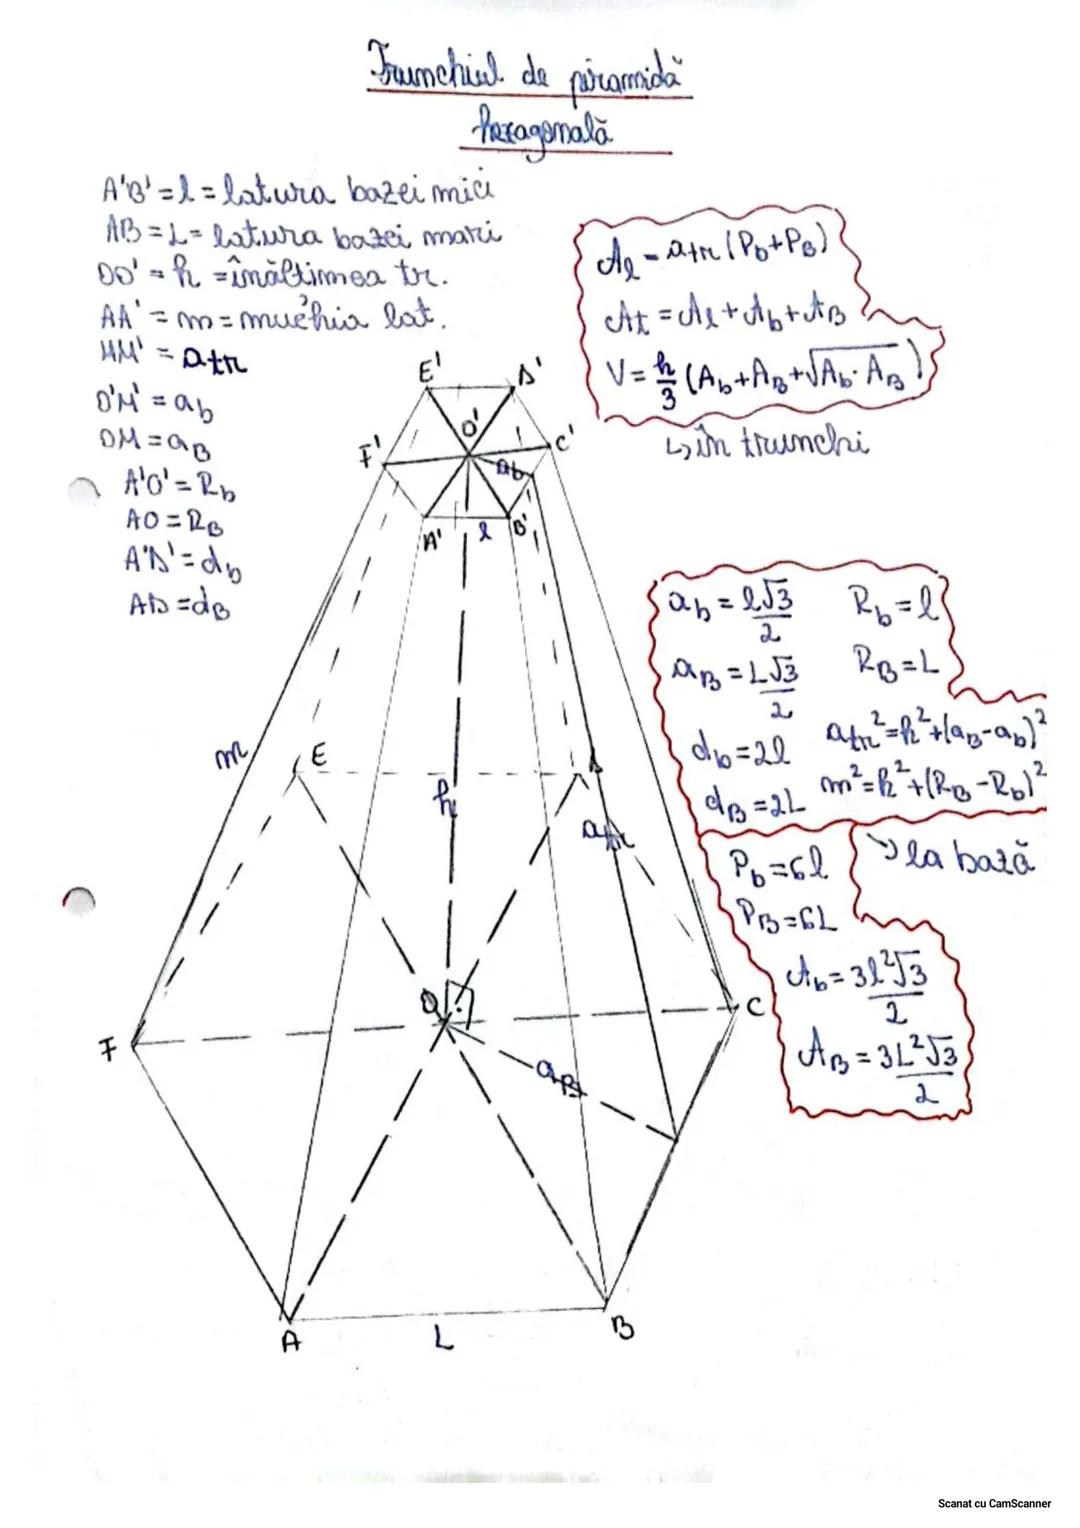 Trunchiul de piramidă
hexagonală
A'B' = l = latura bazei mici
AB = L = latura bazei mari
OO' = h = înălțimea tr.
AA' = m = muchia lat.
MM' = atr
O'M' = ab
OM = aB
A'O' = Rb
AO = RB
A'D' = db
AD = dB
Al = atr (Pb+PB)
At = Al + Ab + AB
V = h/3 (Ab + AB + √Ab · AB)
↳ în trunchi
E'
D'
O'
F'
C'
ab
A'
l
B'
ab = l√3/2
Rb = l
aB = L√3/2
RB = L
db = 2l
atr² = h² + (aB - ab)²
dB = 2L
m² = h² + (RB - Rb)²
↘ la bază
Pb = 6l
PB = 6L
Ab = 3l²√3/2
AB = 3L²√3/2
m
E
D
h
atr
O
C
F
aB
A
L
B
Scanat cu CamScanner